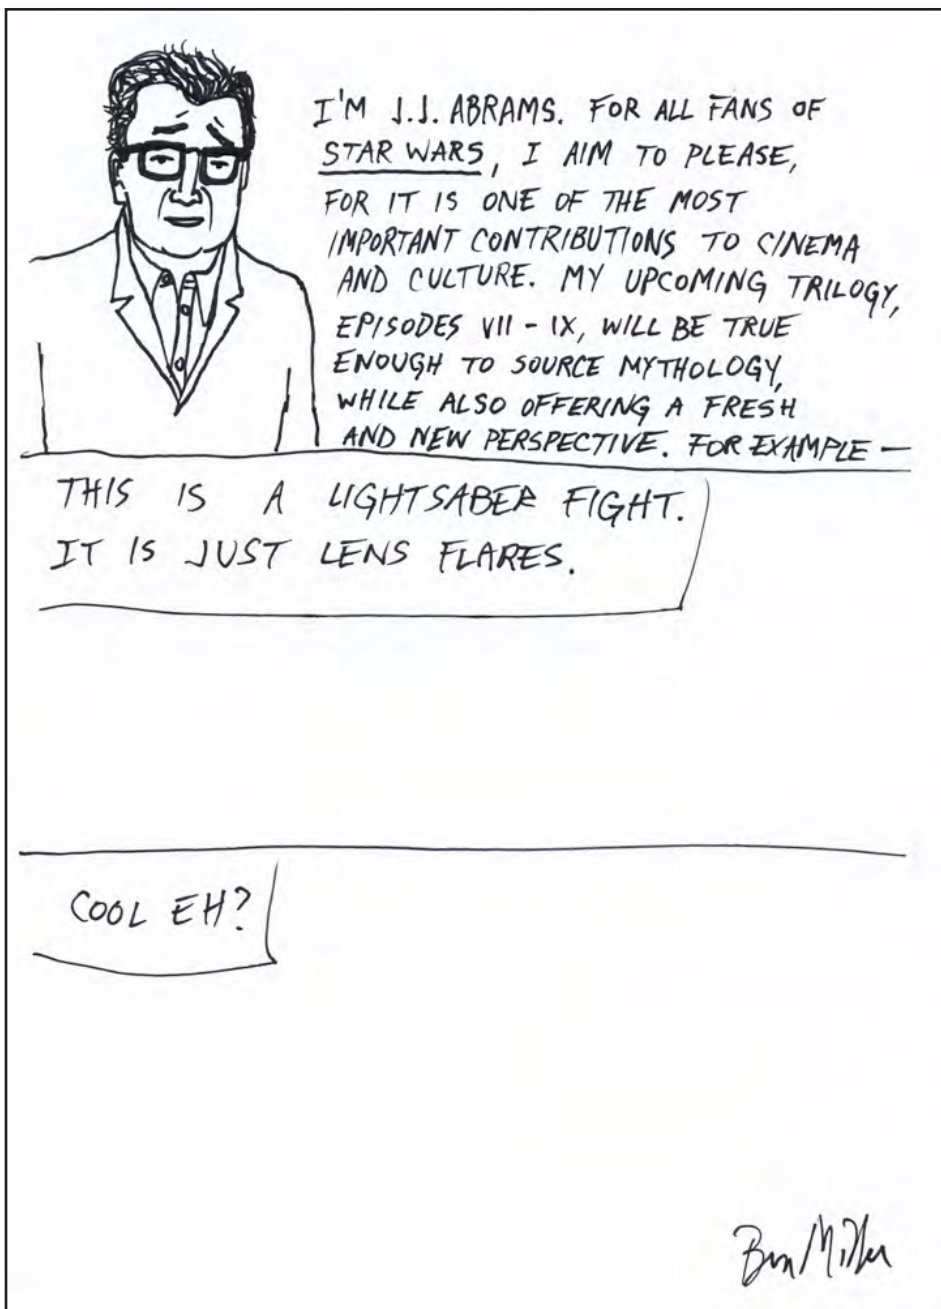 I'M J.J. ABRAMS. FOR ALL FANS OF
STAR WARS, I AIM TO PLEASE,
FOR IT IS ONE OF THE MOST
IMPORTANT CONTRIBUTIONS TO CINEMA
AND CULTURE. MY UPCOMING TRILOGY,
EPISODES VII - IX, WILL BE TRUE
ENOUGH TO SOURCE MYTHOLOGY,
WHILE ALSO OFFERING A FRESH
AND NEW PERSPECTIVE. FOR EXAMPLE —
THIS IS A LIGHTSABER FIGHT.
IT IS JUST LENS FLARES.
COOL EH?
Ben Miller